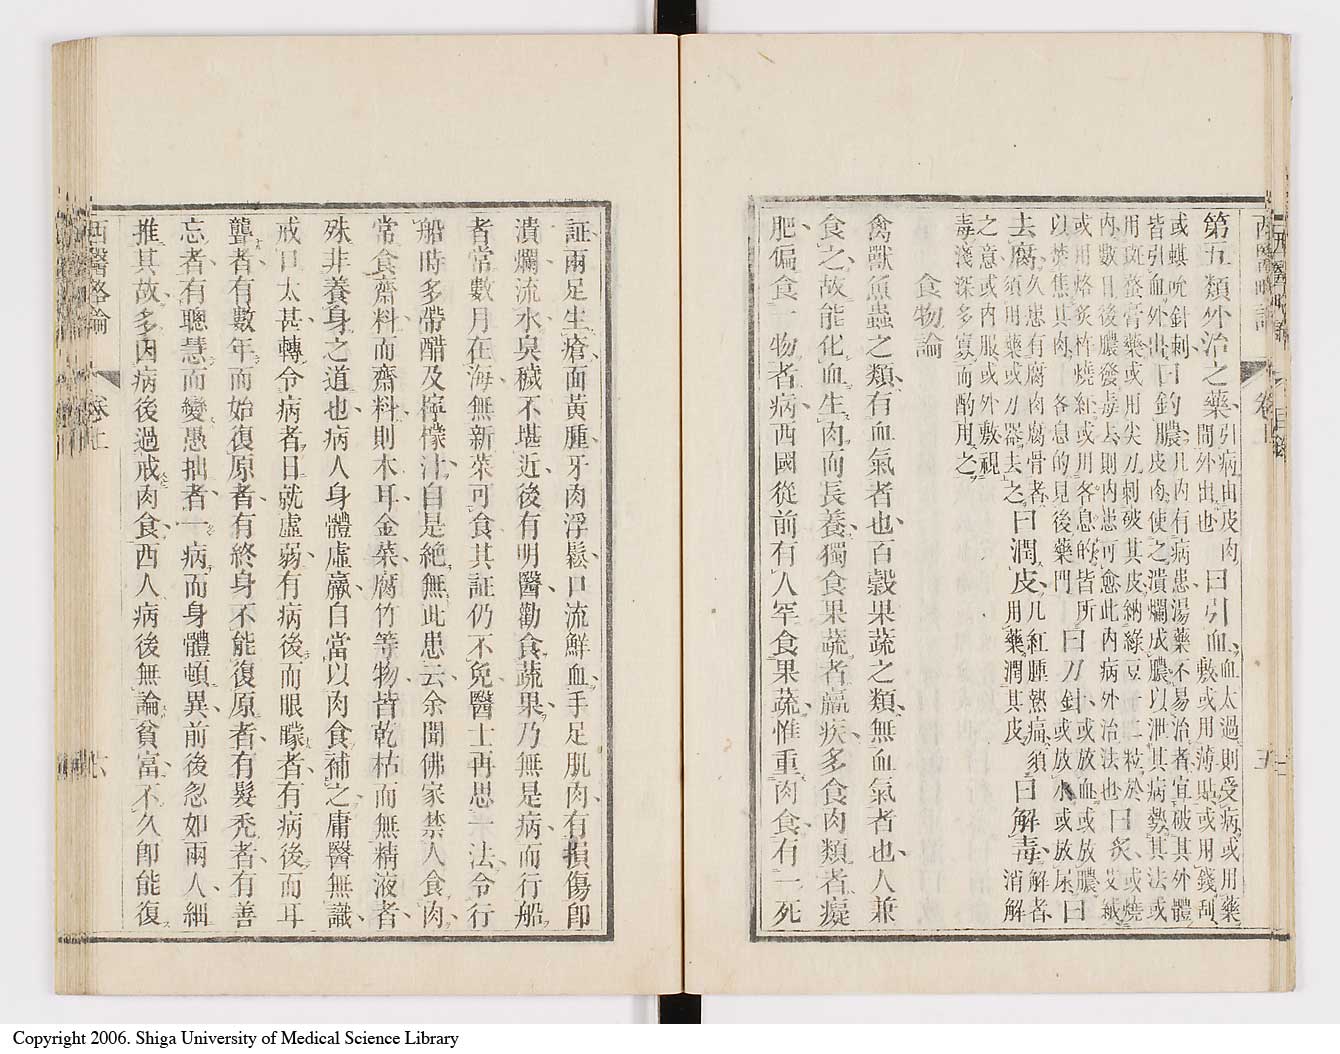 西醫略論　卷上　五
第五類外治之藥引病由皮肉間外出也曰引血血太過則受病或用藥敷或用薄貼或用錢刮
或蜞吮針刺皆引血外出曰釣膿凡內有病患湯藥不易治者宜破其外體皮肉使之潰爛成膿以泄其病勢其法或
用斑蝥膏藥或用尖刀刺破其皮納綠豆一二粒於內數日後膿發毒去則內患可愈此內病外治法也曰炙或燒艾絨
或用烙炙杵燒紅或用各息的皆所以焚焦其肉各息的見後藥門曰刀針或放血或放膿或放水或放尿曰
去腐久患有腐肉腐骨者須用藥或刀器去之曰潤皮凡紅腫熱痛須用藥潤其皮曰解毒解者消解
之意或內服或外敷視毒淺深多寡而酌用之
食物論
禽獸魚蟲之類有血氣者也百穀果蔬之類無血氣者也人兼
食之故能化血生肉而長養獨食果蔬者羸疾多食肉類者癡
肥偏食一物者病西國從前有人罕食果蔬惟重肉食有一死
証兩足生瘡面黃腫牙肉浮鬆口流鮮血手足肌肉有損傷卽
潰爛流水臭穢不堪近後有明醫勸食蔬果乃無是病而行船
者常數月在海無新菜可食其証仍不免醫士再思一法令行
船時多帶醋及檸檬汁自是絕無此患云余聞佛家禁人食肉
常食齋料而齋料則木耳金菜腐竹等物皆乾枯而無精液者
殊非養身之道也病人身體虛羸自當以肉食補之庸醫無識
戒口太甚轉令病者日就虛弱有病後而眼矇者有病後而耳
聾者有數年而始復原者有終身不能復原者有髮禿者有善
忘者有聰慧而變愚拙者一病而身體頓異前後忽如兩人細
推其故多因病後過戒肉食西人病後無論貧富不久卽能復
西醫略論　卷上　六
Copyright 2006. Shiga University of Medical Science Library